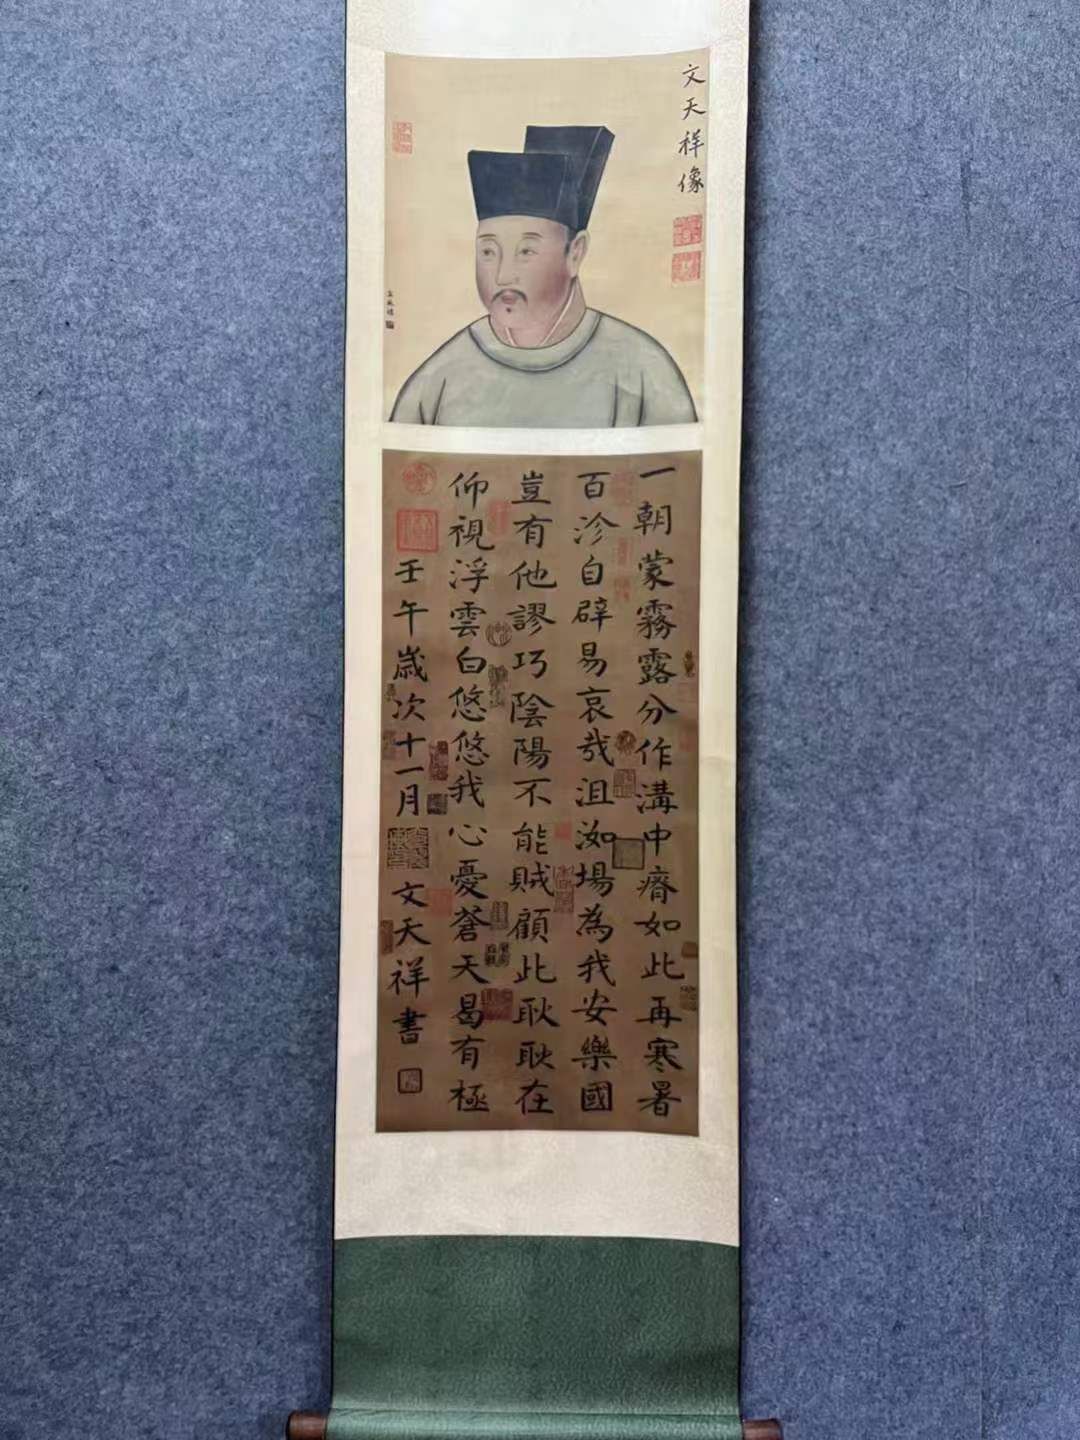 文天祥像
一朝蒙霧露分作溝中瘠如此再寒暑
百沴自辟易哀哉沮洳場為我安樂國
豈有他謬巧陰陽不能賊顧此耿耿在
仰視浮雲白悠悠我心憂蒼天曷有極
壬午歲次十一月
文天祥書